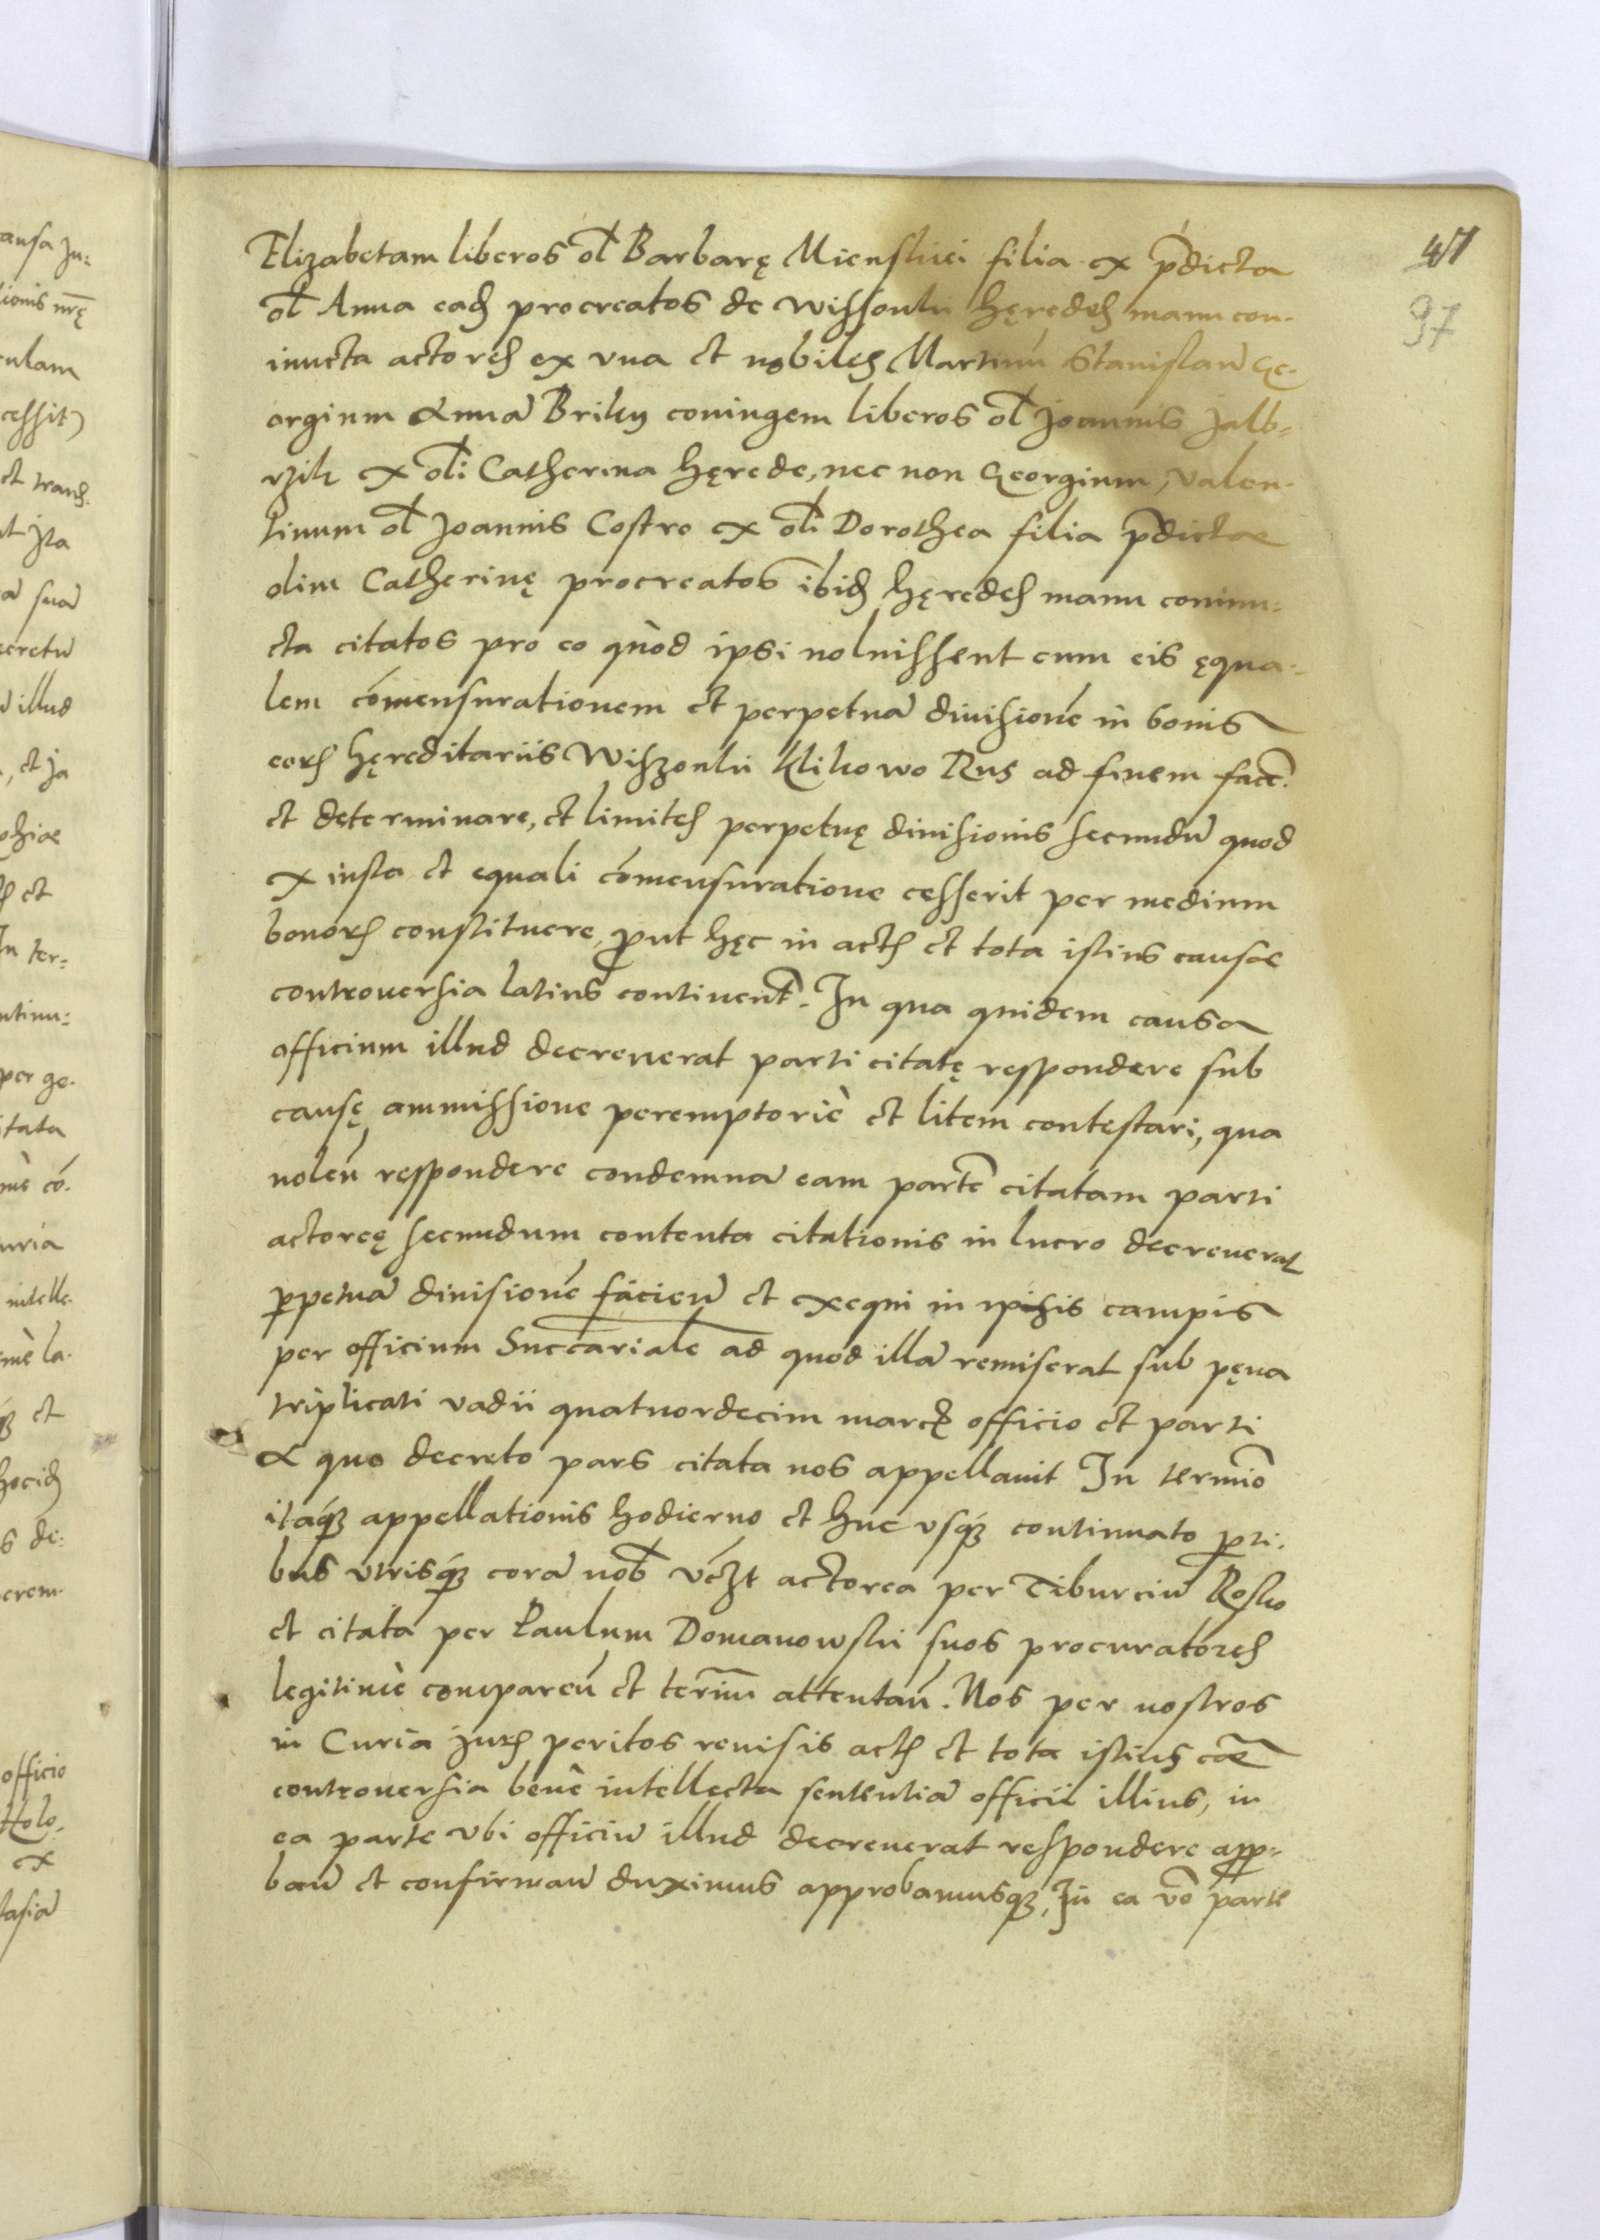 47
97
Elizabetam liberos ol Barbarę Mienskiei filia ex pdicta
ol Anna ead procreatos de Wissonki hęredes manu con-
iuncta actores ex vna et nobiles Martinu Stanislau Ge-
orgium Anna Briky coniugem liberos ol Joannis Jalb-
rzik ex oli Catherina hęrede, nec non Georgium, Valen-
tinum ol Joannis Costro ex oli Dorothea filia pdictae
olim Catherinę procreatos ibid hęredes manu coniun-
cta citatos pro eo quòd ipsi noluissent cum eis ęqua-
lem comensurationem et perpetua diuisione in bonis
eors hęreditariis Wiszonki Klikowo Rus ad finem face
et determinare, et limites perpetuę diuisionis secundu quod
ex iusta et equali comensuratione cesserit per medium
bonors constituere, put hęc in actis et tota istius causae
controuersia latius continent. In qua quidem causa
officium illud decreuerat parti citatę respondere sub
causę ammissione peremptoriè et litem contestari, qua
nolen respondere condemna eam parte citatam parti
actoreę secundum contenta citationis in lucro decreuerat
ppetua diuisione facien et exequi in ipsis campis
per officium Succariale ad quod illa remiserat sub pęna
triplicati vadii quatuordecim marc officio et parti
A quo decreto pars citata nos appellauit In termio
itaq appellationis hodierno et huc vsq continuato pti-
bus vtrisq cora nob vczt actorea per Tiburciu Rosko
et citata per Paulum Domanowski suos procuratores
legitimè comparen et termi attentan. Nos per nostros
in Curia juris peritos reuisis actis et tota istius cae
controuersia bene intellecta sententia officii illius, in
ea parte vbi officiu illud decreuerat respondere app-
ban et confirman duximus approbamusq, In ea vo parte